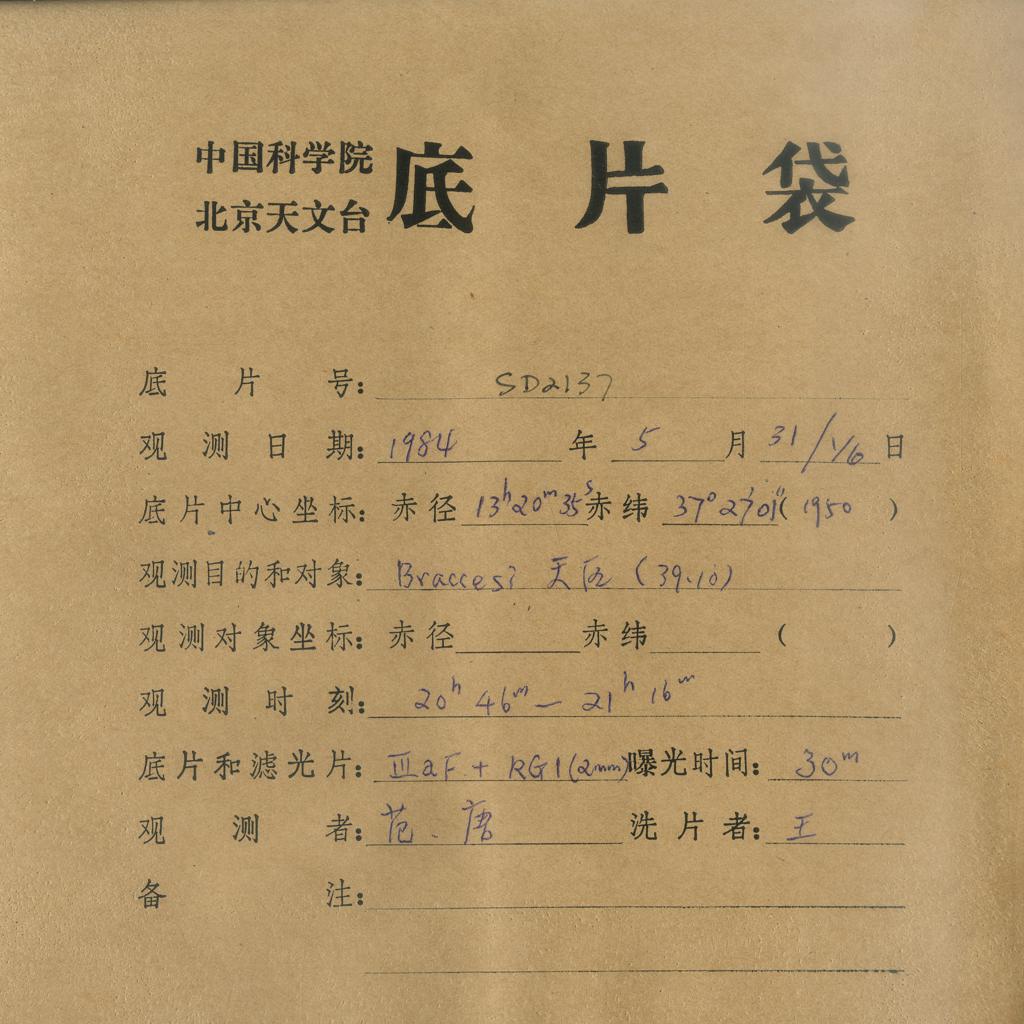 中国科学院
北京天文台 底片袋
底片号: SD2137
观测日期: 1984 年 5 月 31/1/6 日
底片中心坐标: 赤径 13h20m35s 赤纬 37°27'01" (1950)
观测目的和对象: Braccesi 天区 (39.10)
观测对象坐标: 赤径 赤纬 ( )
观测时刻: 20h 46m — 21h 16m
底片和滤光片: IIIaF + RG1(2mm) 曝光时间: 30m
观测者: 范、唐 洗片者: 王
备注: